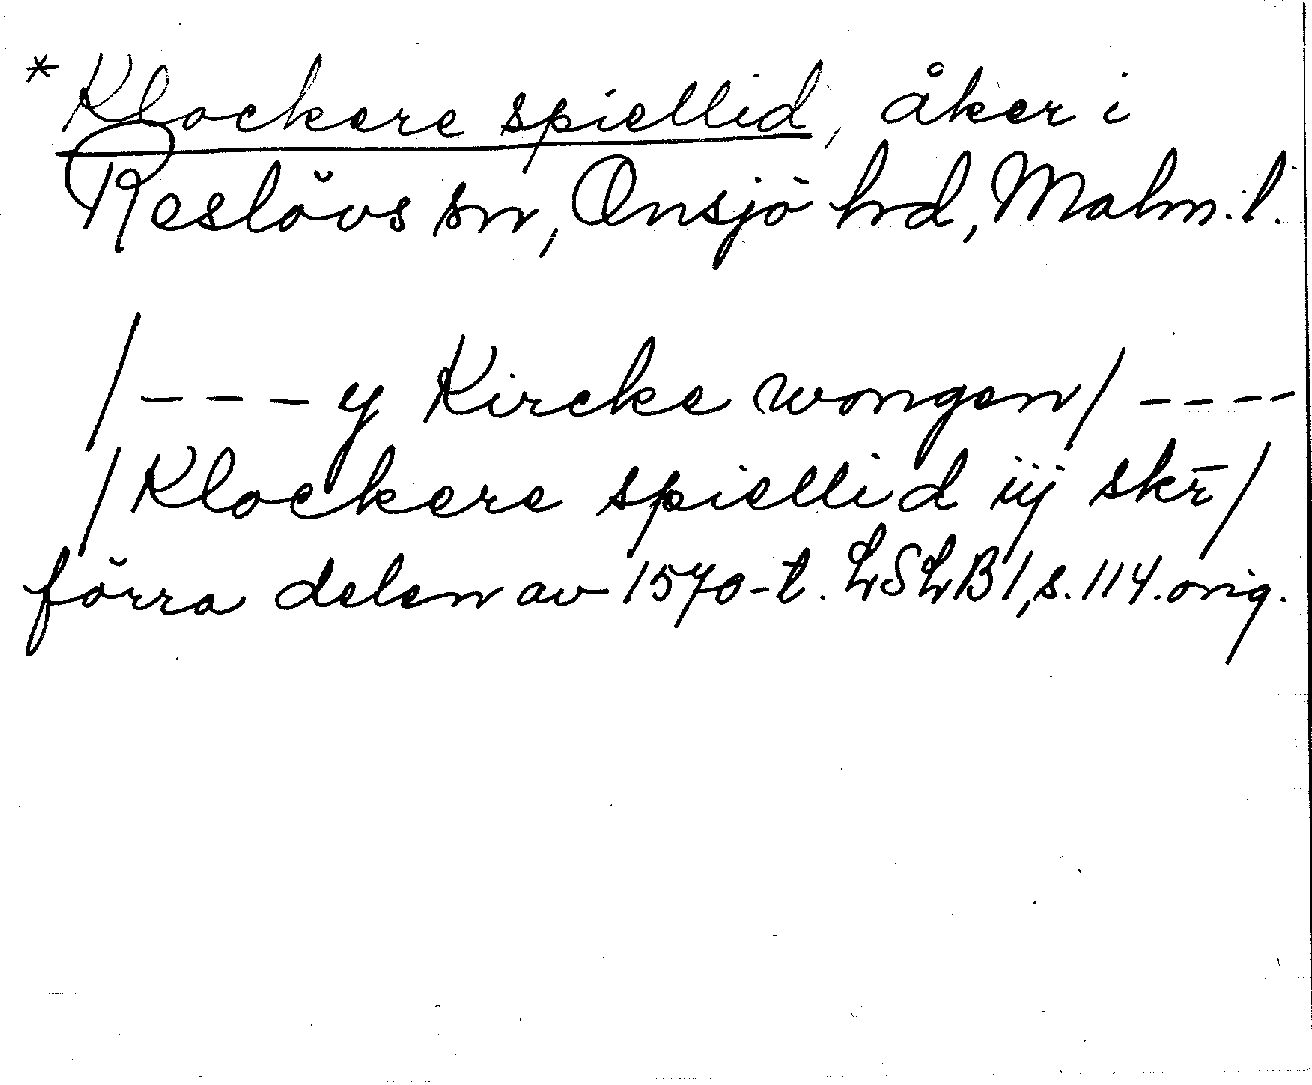 *Klockere spiellid, åker i
Reslövs sn, Onsjö hd, Malm. l.
/---y Kircke wongen/ ----
/Klockere spiellid iij skr̄/
förra delen av 1570-t. LSLB 1, s. 114. orig.